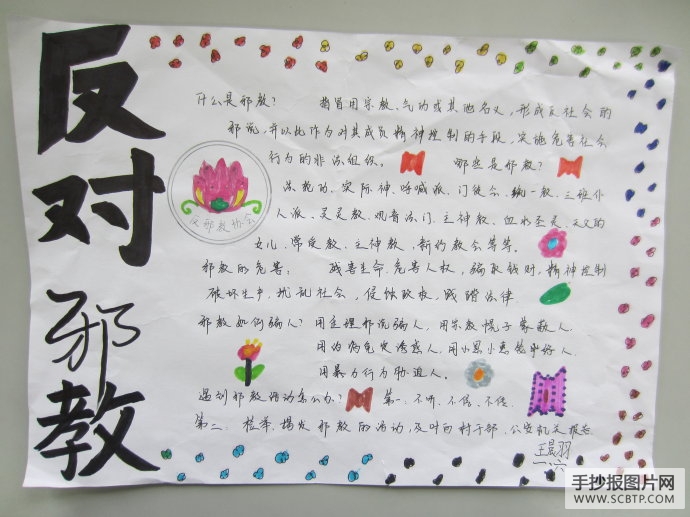 反对邪教
什么是邪教？ 指冒用宗教、气功或其他名义，形成反社会的
邪说，并以此作为对其成员精神控制的手段，实施危害社会
行为的非法组织。 哪些是邪教？
法轮功、实际神、呼喊派、门徒会、统一教、三班仆
人派、灵灵教、观音法门、主神教、血水圣灵、天父的
女儿、常受教、之神教、新约教会等等。
反邪教协会
邪教的危害： 残害生命、危害人权，骗取钱财，精神控制
破坏生产，扰乱社会，侵蚀政权，践踏法律
邪教如何骗人？用歪理邪说骗人，用宗教幌子蒙蔽人
用治病免灾诱惑人，用小恩小惠 人
用暴力行为胁迫人。
遇到邪教活动怎么办？ 第一：不听、不信、不传、
第二：检举、揭发邪教的活动，及时向村干部、公安机关报告
王晨羽
一、六
手抄报图片网
WWW.SCBTP.COM